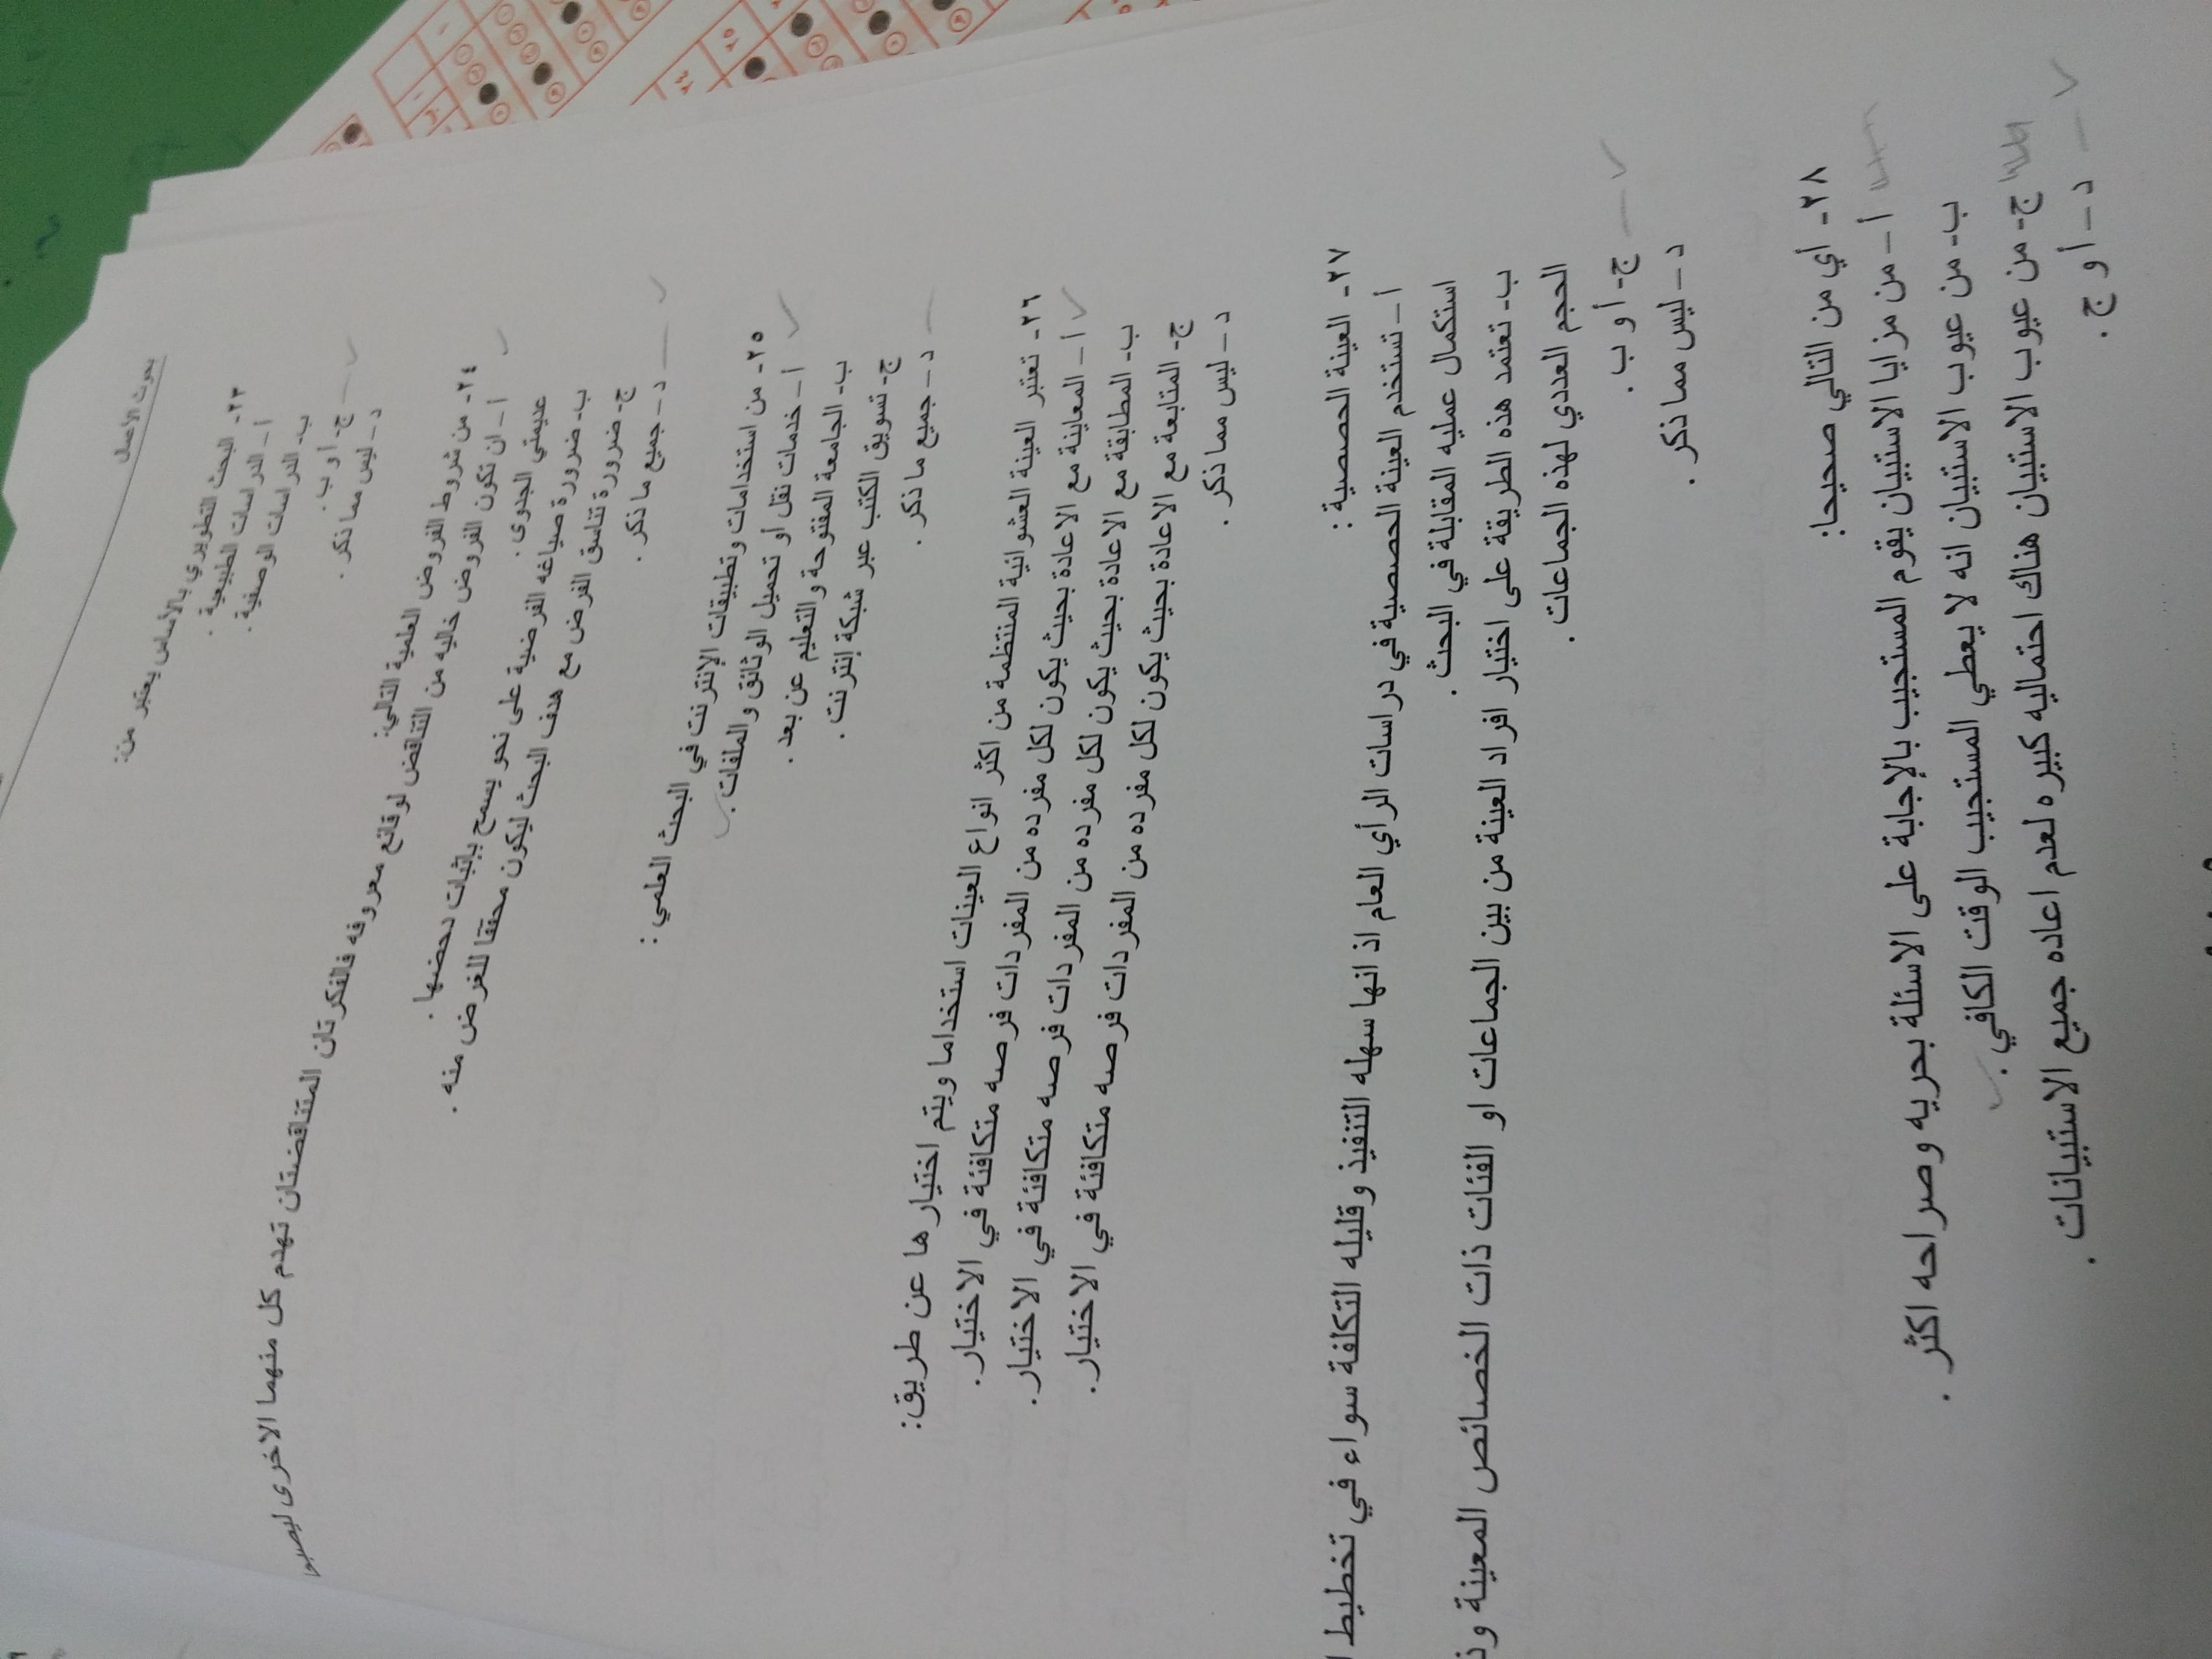 بحوث الأعمال
٢٣- البحث التطويري بالأساس يعتبر من:
أ – الدراسات الطبيعية .
ب- الدراسات الوصفية .
ج- أ و ب .
د – ليس مما ذكر .
٢٤- من شروط الفروض العلمية التالي:
أ – ان تكون الفروض خاليه من التناقض لوقائع معروفه فالفكرتان المتناقضتان تهدم كل منهما الاخرى ليصبحوا
عديمتي الجدوى .
ب- ضرورة صياغه الفرضية على نحو يسمح بإثبات دحضها .
ج- ضرورة تناسق الفرض مع هدف البحث ليكون محققا للغرض منه .
د – جميع ما ذكر .
٢٥- من استخدامات وتطبيقات الإنترنت في البحث العلمي :
أ – خدمات نقل أو تحميل الوثائق والملفات .
ب- الجامعة المفتوحة والتعليم عن بعد .
ج- تسويق الكتب عبر شبكة إنترنت .
د – جميع ما ذكر .
٢٦- تعتبر العينة العشوائية المنتظمة من اكثر انواع العينات استخداما ويتم اختيارها عن طريق:
أ – المعاينة مع الاعادة بحيث يكون لكل مفرده من المفردات فرصه متكافئة في الاختيار .
ب- المطابقة مع الاعادة بحيث يكون لكل مفرده من المفردات فرصه متكافئة في الاختيار .
ج- المتابعة مع الاعادة بحيث يكون لكل مفرده من المفردات فرصه متكافئة في الاختيار .
د – ليس مما ذكر .
٢٧- العينة الحصصية :
أ – تستخدم العينة الحصصية في دراسات الرأي العام اذ انها سهله التنفيذ وقليله التكلفة سواء في تخطيط
استكمال عمليه المقابلة في البحث .
ب- تعتمد هذه الطريقة على اختيار افراد العينة من بين الجماعات او الفئات ذات الخصائص المعينة
الحجم العددي لهذه الجماعات .
ج- أ و ب .
د – ليس مما ذكر .
٢٨- أي من التالي صحيحا:
أ – من مزايا الاستبيان يقوم المستجيب بالإجابة على الاسئلة بحريه وصراحه اكثر .
ب- من عيوب الاستبيان انه لا يعطي المستجيب الوقت الكافي .
ج- من عيوب الاستبيان هناك احتماليه كبيره لعدم اعاده جميع الاستبيانات .
د – أ و ج .